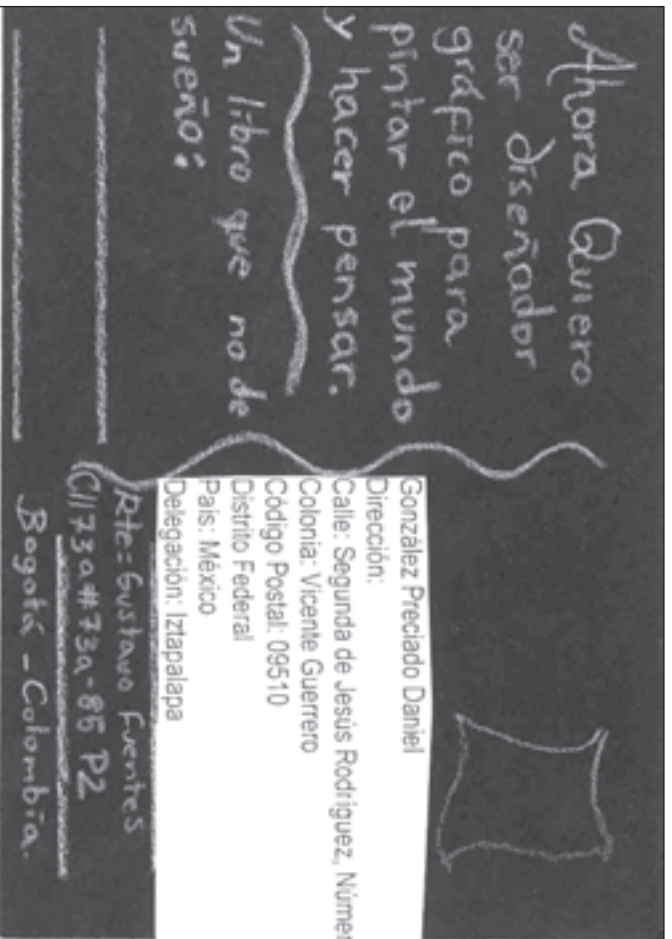 Ahora Quiero
ser diseñador
gráfico para
pintar el mundo
y hacer pensar.
Un libro que no de
sueño:
González Preciado Daniel
Dirección:
Calle: Segunda de Jesús Rodríguez, Númer
Colonia: Vicente Guerrero
Código Postal: 09510
Distrito Federal
País: México
Delegación: Iztapalapa
Rte= Gustavo Fuentes
Cll73a#73a-85 P2
Bogotá - Colombia.